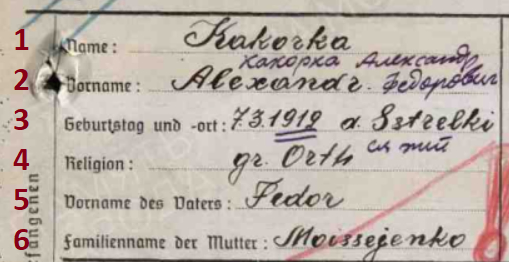 1 Name: Kakorka
Какорка Александр
2 Vorname: Alexandr. Федорович
3 Geburtstag und -ort: 7.3.1919 d. Sztrelki
4 Religion: gr. Orth
5 Vorname des Vaters: Fedor
6 Familienname der Mutter: Moissejenko
fangenen